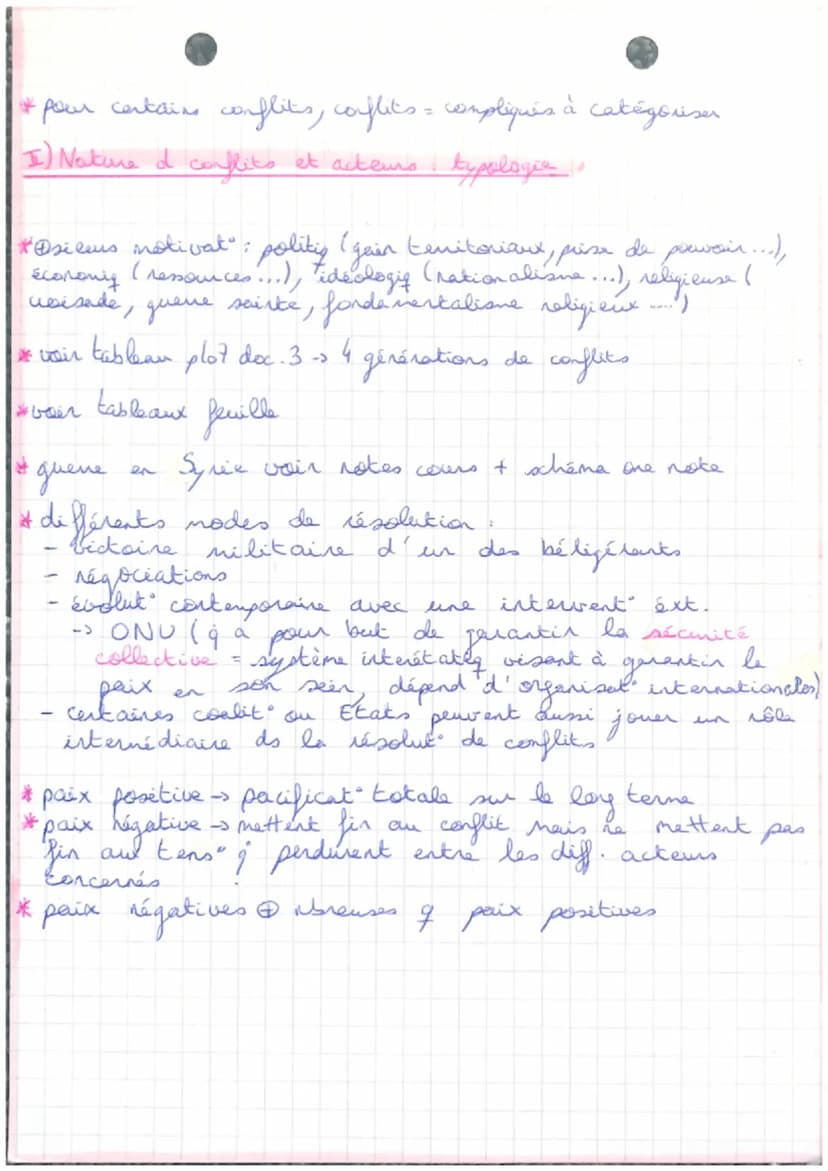 * pour certains conflits, conflits = compliqués à catégoriser
II) Nature d conflits et acteurs : typologie
* ⊕sieurs motivat° : politiq (gain territoriaux, prise de pouvoir ...),
économiq (ressources ...), idéologiq (nationalisme ...), religieuse (
croisade, guerre sainte, fondamentalisme religieux ....)
* voir tableau p107 doc. 3 -> 4 générations de conflits
* voir tableaux feuille
* guerre en Syrie voir notes cours + schéma one note
* différents modes de résolution :
- victoire militaire d'un des béligérants
- négociations
- évolut° contemporaine avec une intervent° ext.
-> ONU (q a pour but de garantir la sécurité
collective = système interétatiq visant à garantir la
paix en son sein, dépend d'organisat° internationales)
- certaines coalit° ou Etats peuvent aussi jouer un rôle
intermédiaire ds la résolut° de conflits
* paix positive -> pacificat° totale sur le long terme
* paix négative -> mettent fin au conflit mais ne mettent pas
fin aux tens° q perdurent entre les diff. acteurs
concernés
* paix négatives ⊕ nbreuses q paix positives